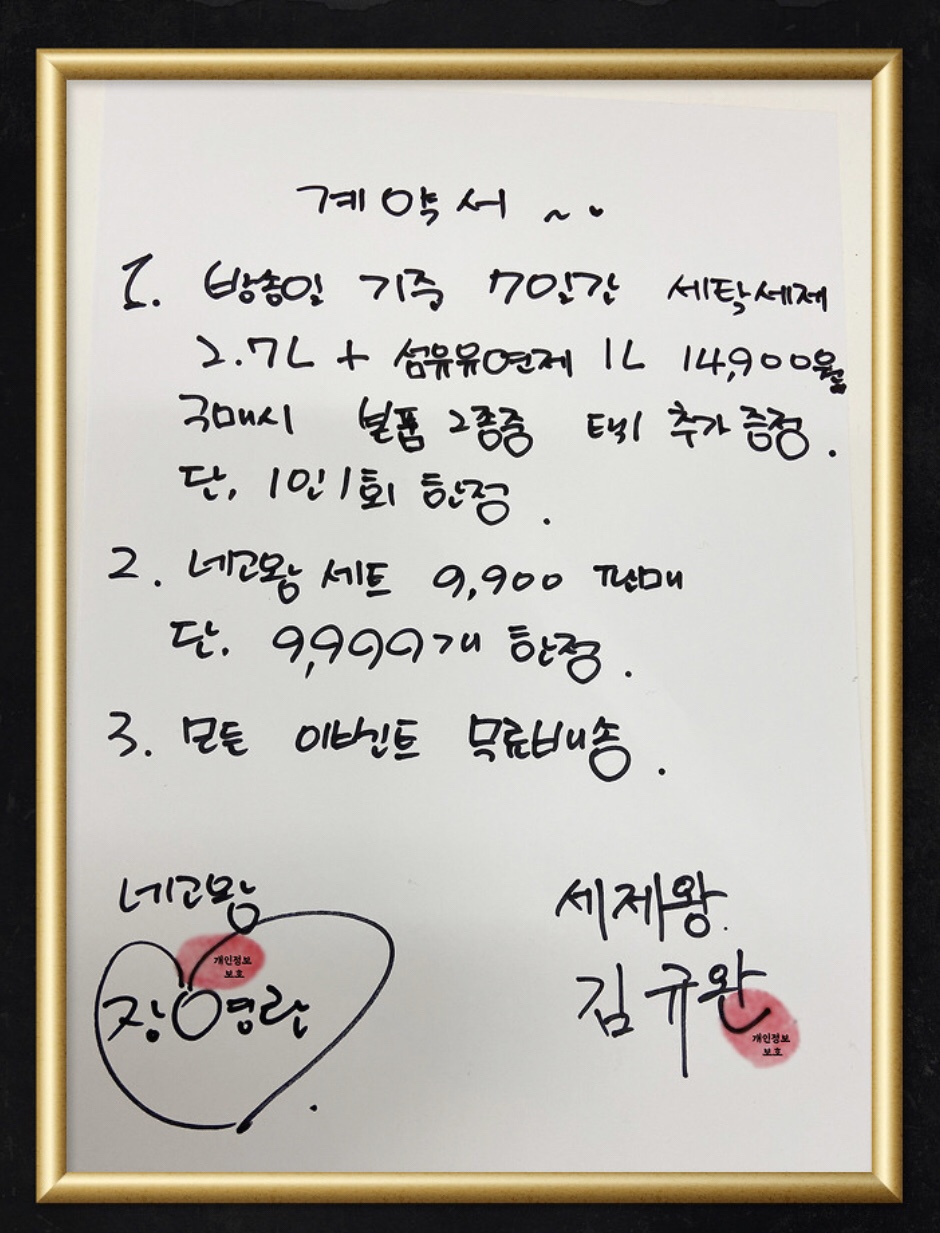 계약서 ~.
1. 방송일 기준 7일간 세탁세제
2.7L + 섬유유연제 1L 14,900원
구매시 본품 2종중 택1 추가 증정.
단, 1인 1회 한정.
2. 네고왕 세트 9,900 판매
단, 9,999개 한정.
3. 모든 이벤트 무료배송.
네고왕
장영란
세제왕
김규완
개인정보
보호
개인정보
보호